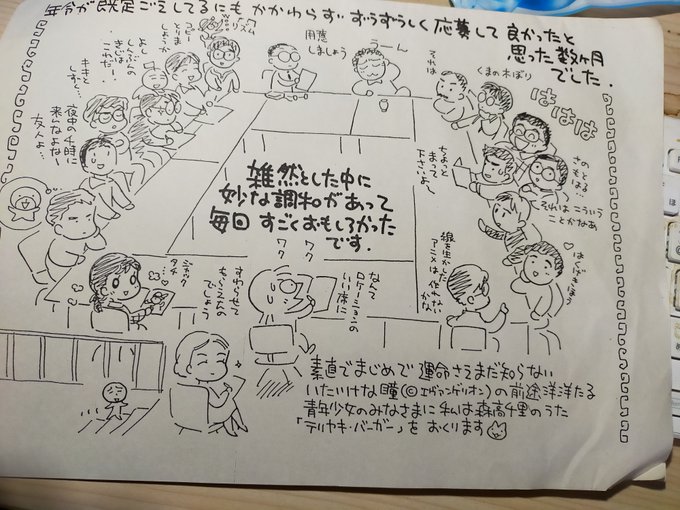 年令が既定ごえしてるにもかかわらず ずうずうしく応募して良かったと
思った数ヶ月
でした.
用意
しましょう
うーん
それは
くまの木ぼり
ははは
コピー
とりま
しょうか
よし
しんぶんの
きじは
これだー!
夜中の4時に
来んなよな
友人よ…
ちょっと
まって
下さいよ
さの
もとはる…
それはこういう
ことかなあ
雑然とした中に
妙な調和があって
毎回すごくおもしろかった
です.
ワク
ワク
線を生かした
アニメは
なんて
ロケーションの
いい体に
ジャック
タチ
素直でまじめで運命さえまだ知らない
いたいけな瞳(©エヴァンゲリオン)の前途洋洋たる
青年少女のみなさまに私は森高千里のうた
「テリヤキ・バーガー」をおくります